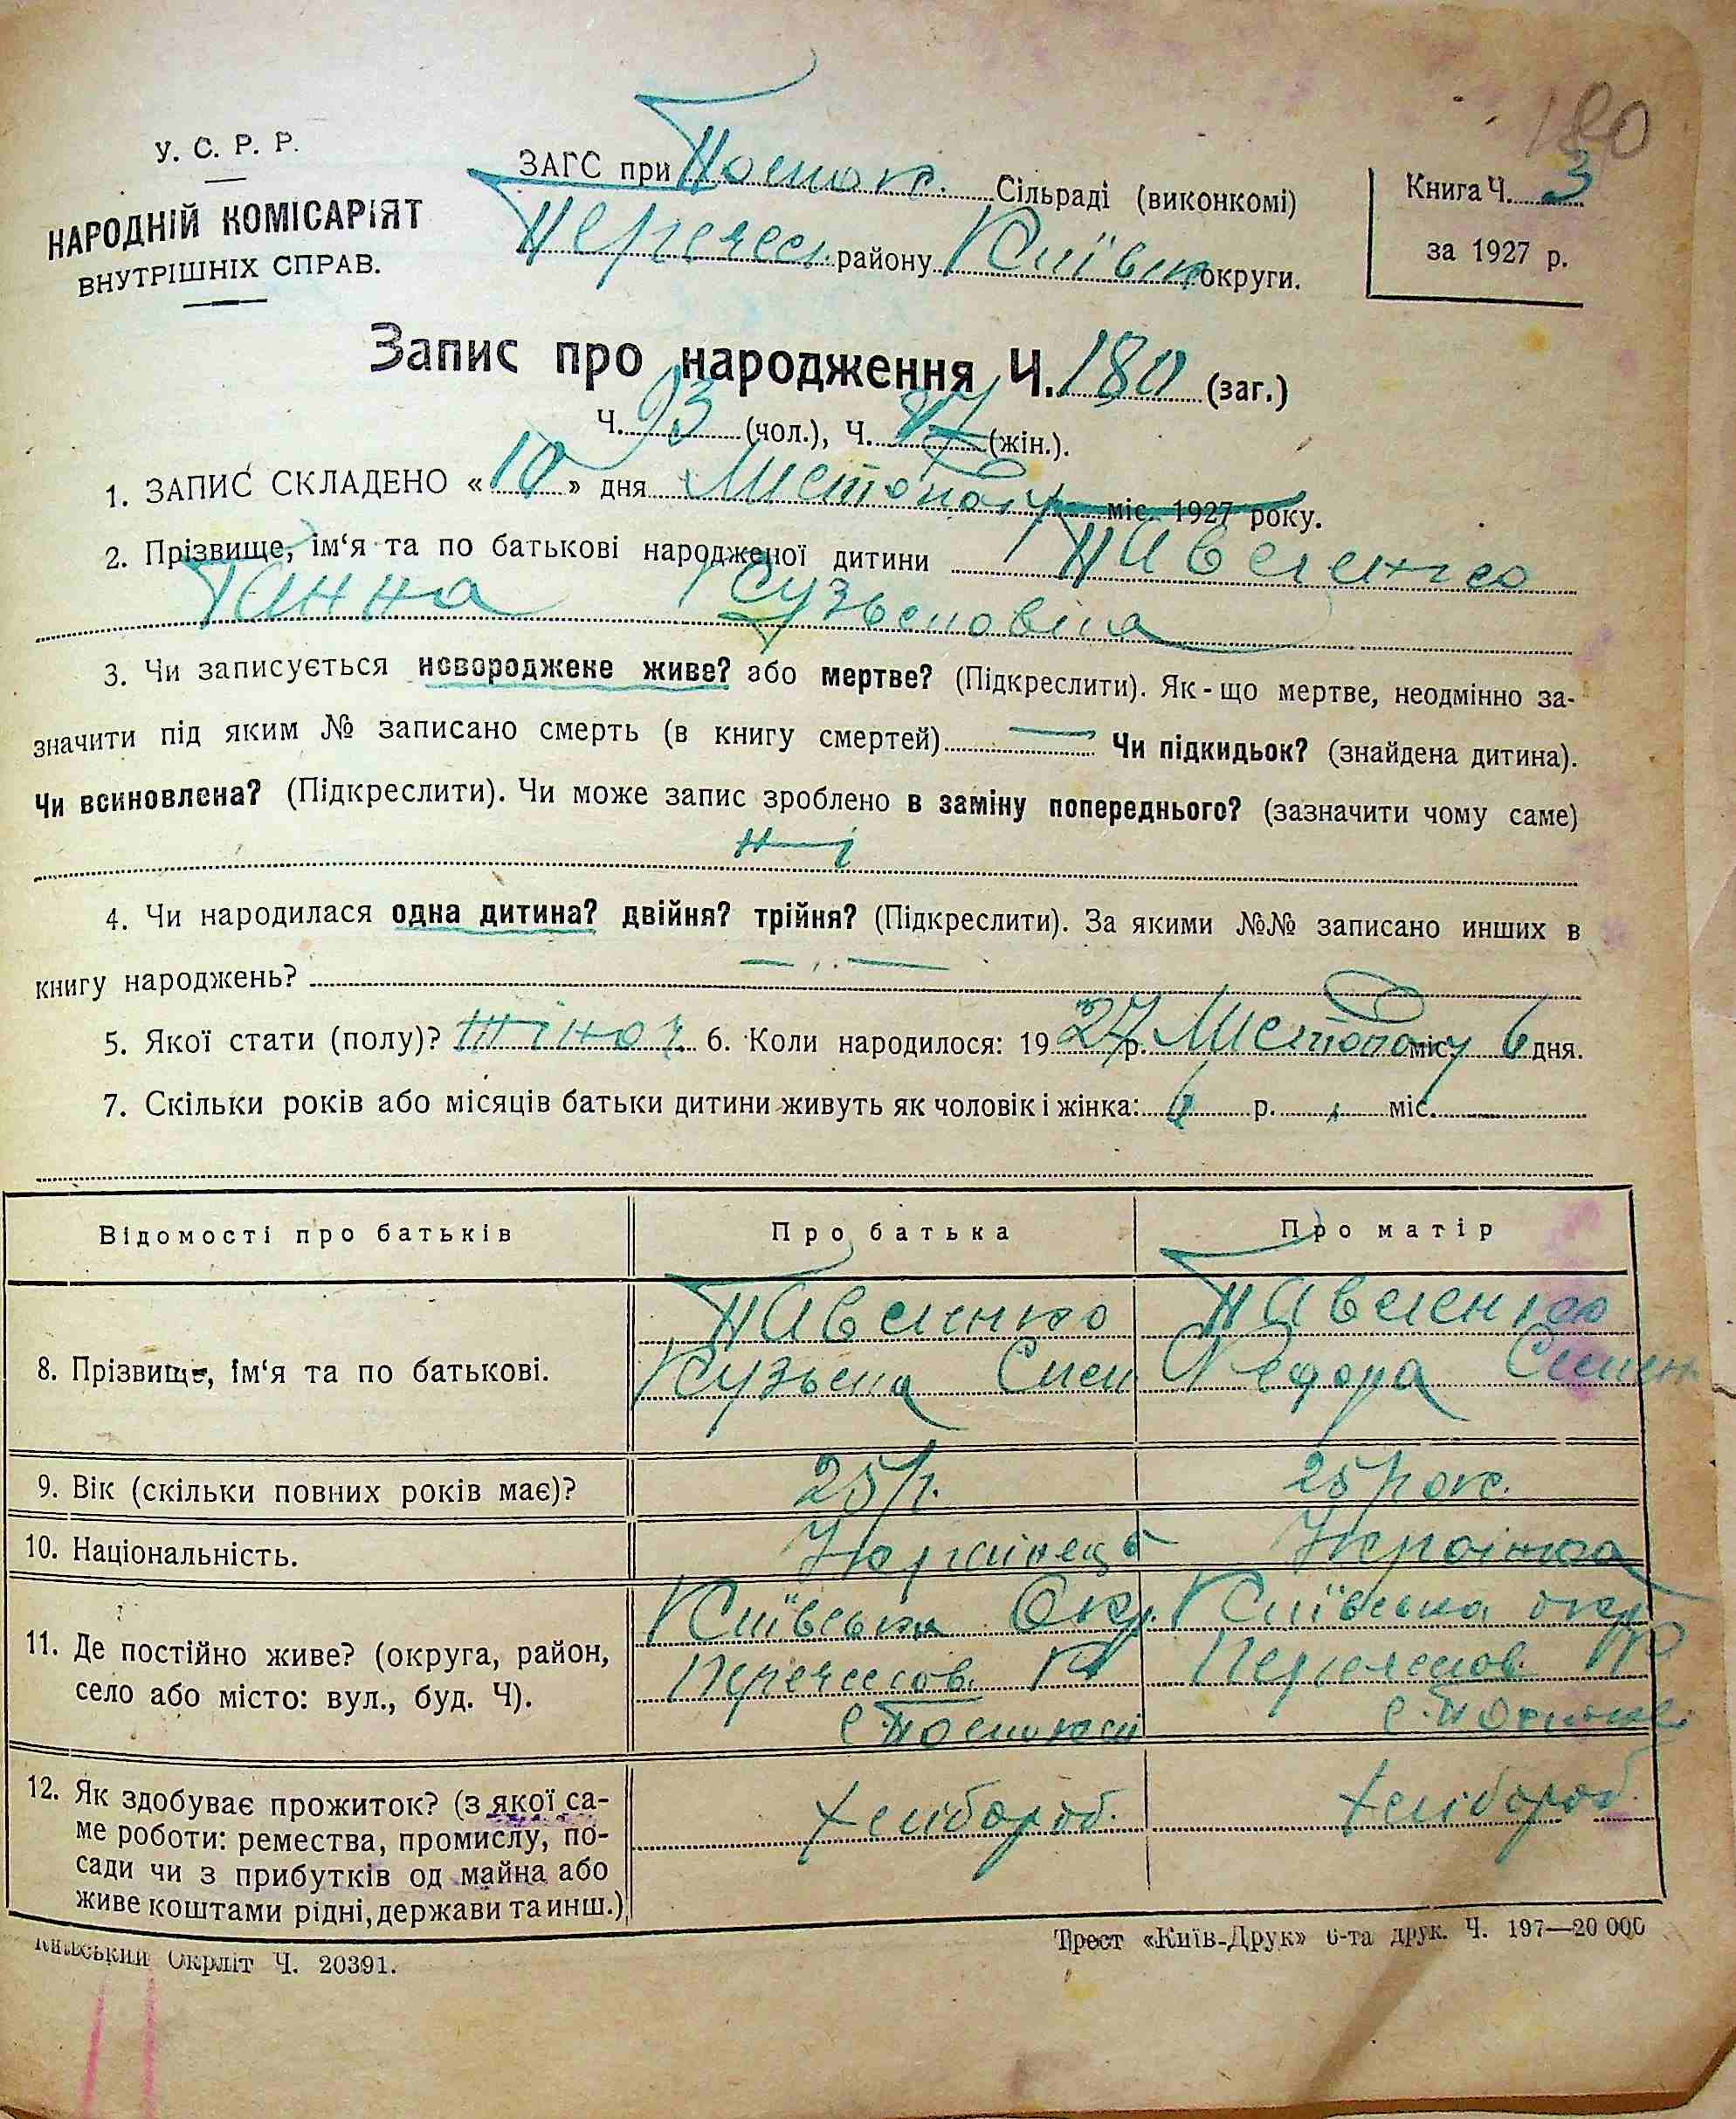 180
У. С. Р. Р.
НАРОДНІЙ КОМІСАРІЯТ
ВНУТРІШНІХ СПРАВ.
ЗАГС при Сільраді (виконкомі)
району Київськ округи.
Книга Ч. 3
за 1927 р.
Запис про народження Ч. 180 (заг.)
Ч. 93 (чол.), Ч. 87 (жін.).
1. ЗАПИС СКЛАДЕНО « 10 » дня Листопаду міс. 1927 року.
2. Прізвище, ім‘я та по батькові народженої дитини Павленко
Ганна Кузьмовна
3. Чи записується новороджене живе? або мертве? (Підкреслити). Як-що мертве, неодмінно за-
значити під яким № записано смерть (в книгу смертей) — Чи підкидьок? (знайдена дитина).
Чи всиновлена? (Підкреслити). Чи може запис зроблено в заміну попереднього? (зазначити чому саме)
ні
4. Чи народилася одна дитина? двійня? трійня? (Підкреслити). За якими №№ записано инших в
книгу народжень? — —
5. Якої стати (полу)? жіноч. 6. Коли народилося: 1927 р. Листопаду міс. 6 дня.
7. Скільки років або місяців батьки дитини живуть як чоловік і жінка: р. міс.
Відомості про батьків Про батька Про матір
8. Прізвище, ім‘я та по батькові. Павленко Павленко
Кузьма Сем Хефора Семен
9. Вік (скільки повних років має)? 25 р. 25 рок.
10. Національність. Українець Українка
11. Де постійно живе? (округа, район, село або місто: вул., буд. Ч). Київська Окр. Київська окр
12. Як здобуває прожиток? (з якої са-
ме роботи: ремества, промислу, по-
сади чи з прибутків од майна або
живе коштами рідні, держави та инш.)
хлібороб. хлібороб.
Київський Окрліт Ч. 20391.
Трест «Київ-Друк» 6-та друк. Ч. 197—20 000